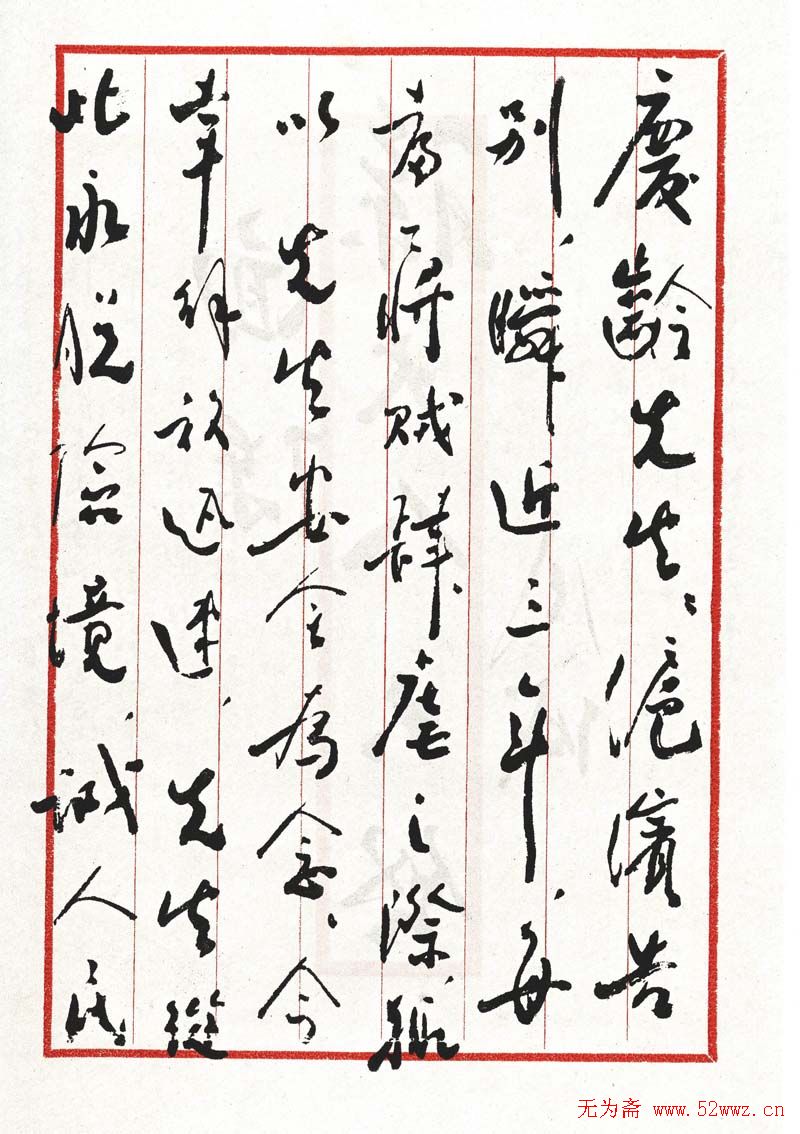 慶齡先生：滬濱告
別，瞬近三年，每
當蔣賊肆虐之際，輒
以先生安全為念。今
幸解放迅速，先生從
此永脫險境，誠人民
无为斋 www.52wwz.cn